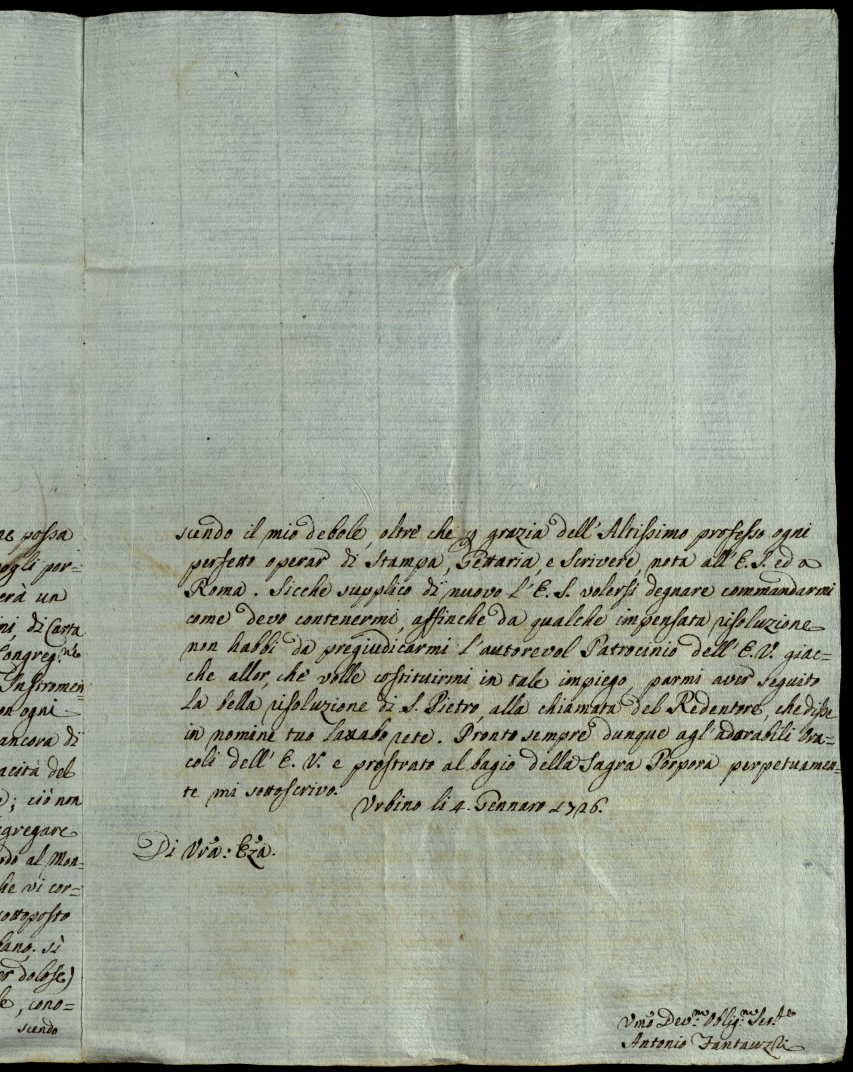 ne possa
ogli por=
erà un
ni, di Carta
Congreg.ne
Instromen
on ogni
ancora di
acità del
; ciò non
gregare
rdo al Mon=
he vi cor=
sottoposto
lano. sì
er dolose)
le, cono=
scendo
scendo il mio debole, oltre che p grazia dell'Altissimo professo ogni
perfetto operar di Stampa, Gettaria, e Scrivere, nota all'E. S. ed a
Roma. Sicche supplico di nuovo l'E. S. volersi degnare commandarmi
come devo contenermi, affinche da qualche impensata risoluzione
non habbi da pregiudicarmi l'autorevol Patrocinio dell'E. V. giac=
che allor, che volle costituirmi in tale impiego, parmi aver seguito
la bella risoluzione di S. Pietro, alla chiamata del Redentore, che disse
in nomine tuo laxabo rete. Pronto sempre dunque agl'adorabili Ora=
coli dell'E. V. e prostrato al bagio della Sagra Porpora perpetuamen=
te mi sottoscrivo.
Urbino li 4. Gennaro 1726.
Di Vr̃a: Ezã.
Vmõ Dev.mo Oblig.mo Ser.re
Antonio Fantauzzi